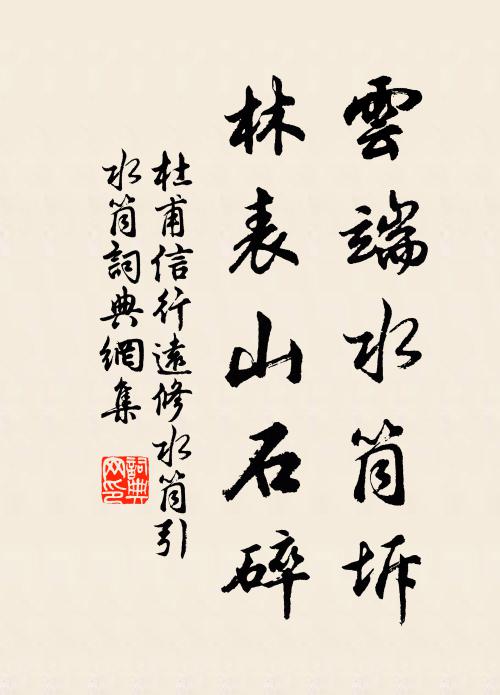 雲端水筒坼
林表山石碎
杜甫信行遠修水筒引
水筒詞典網集
詞典網印